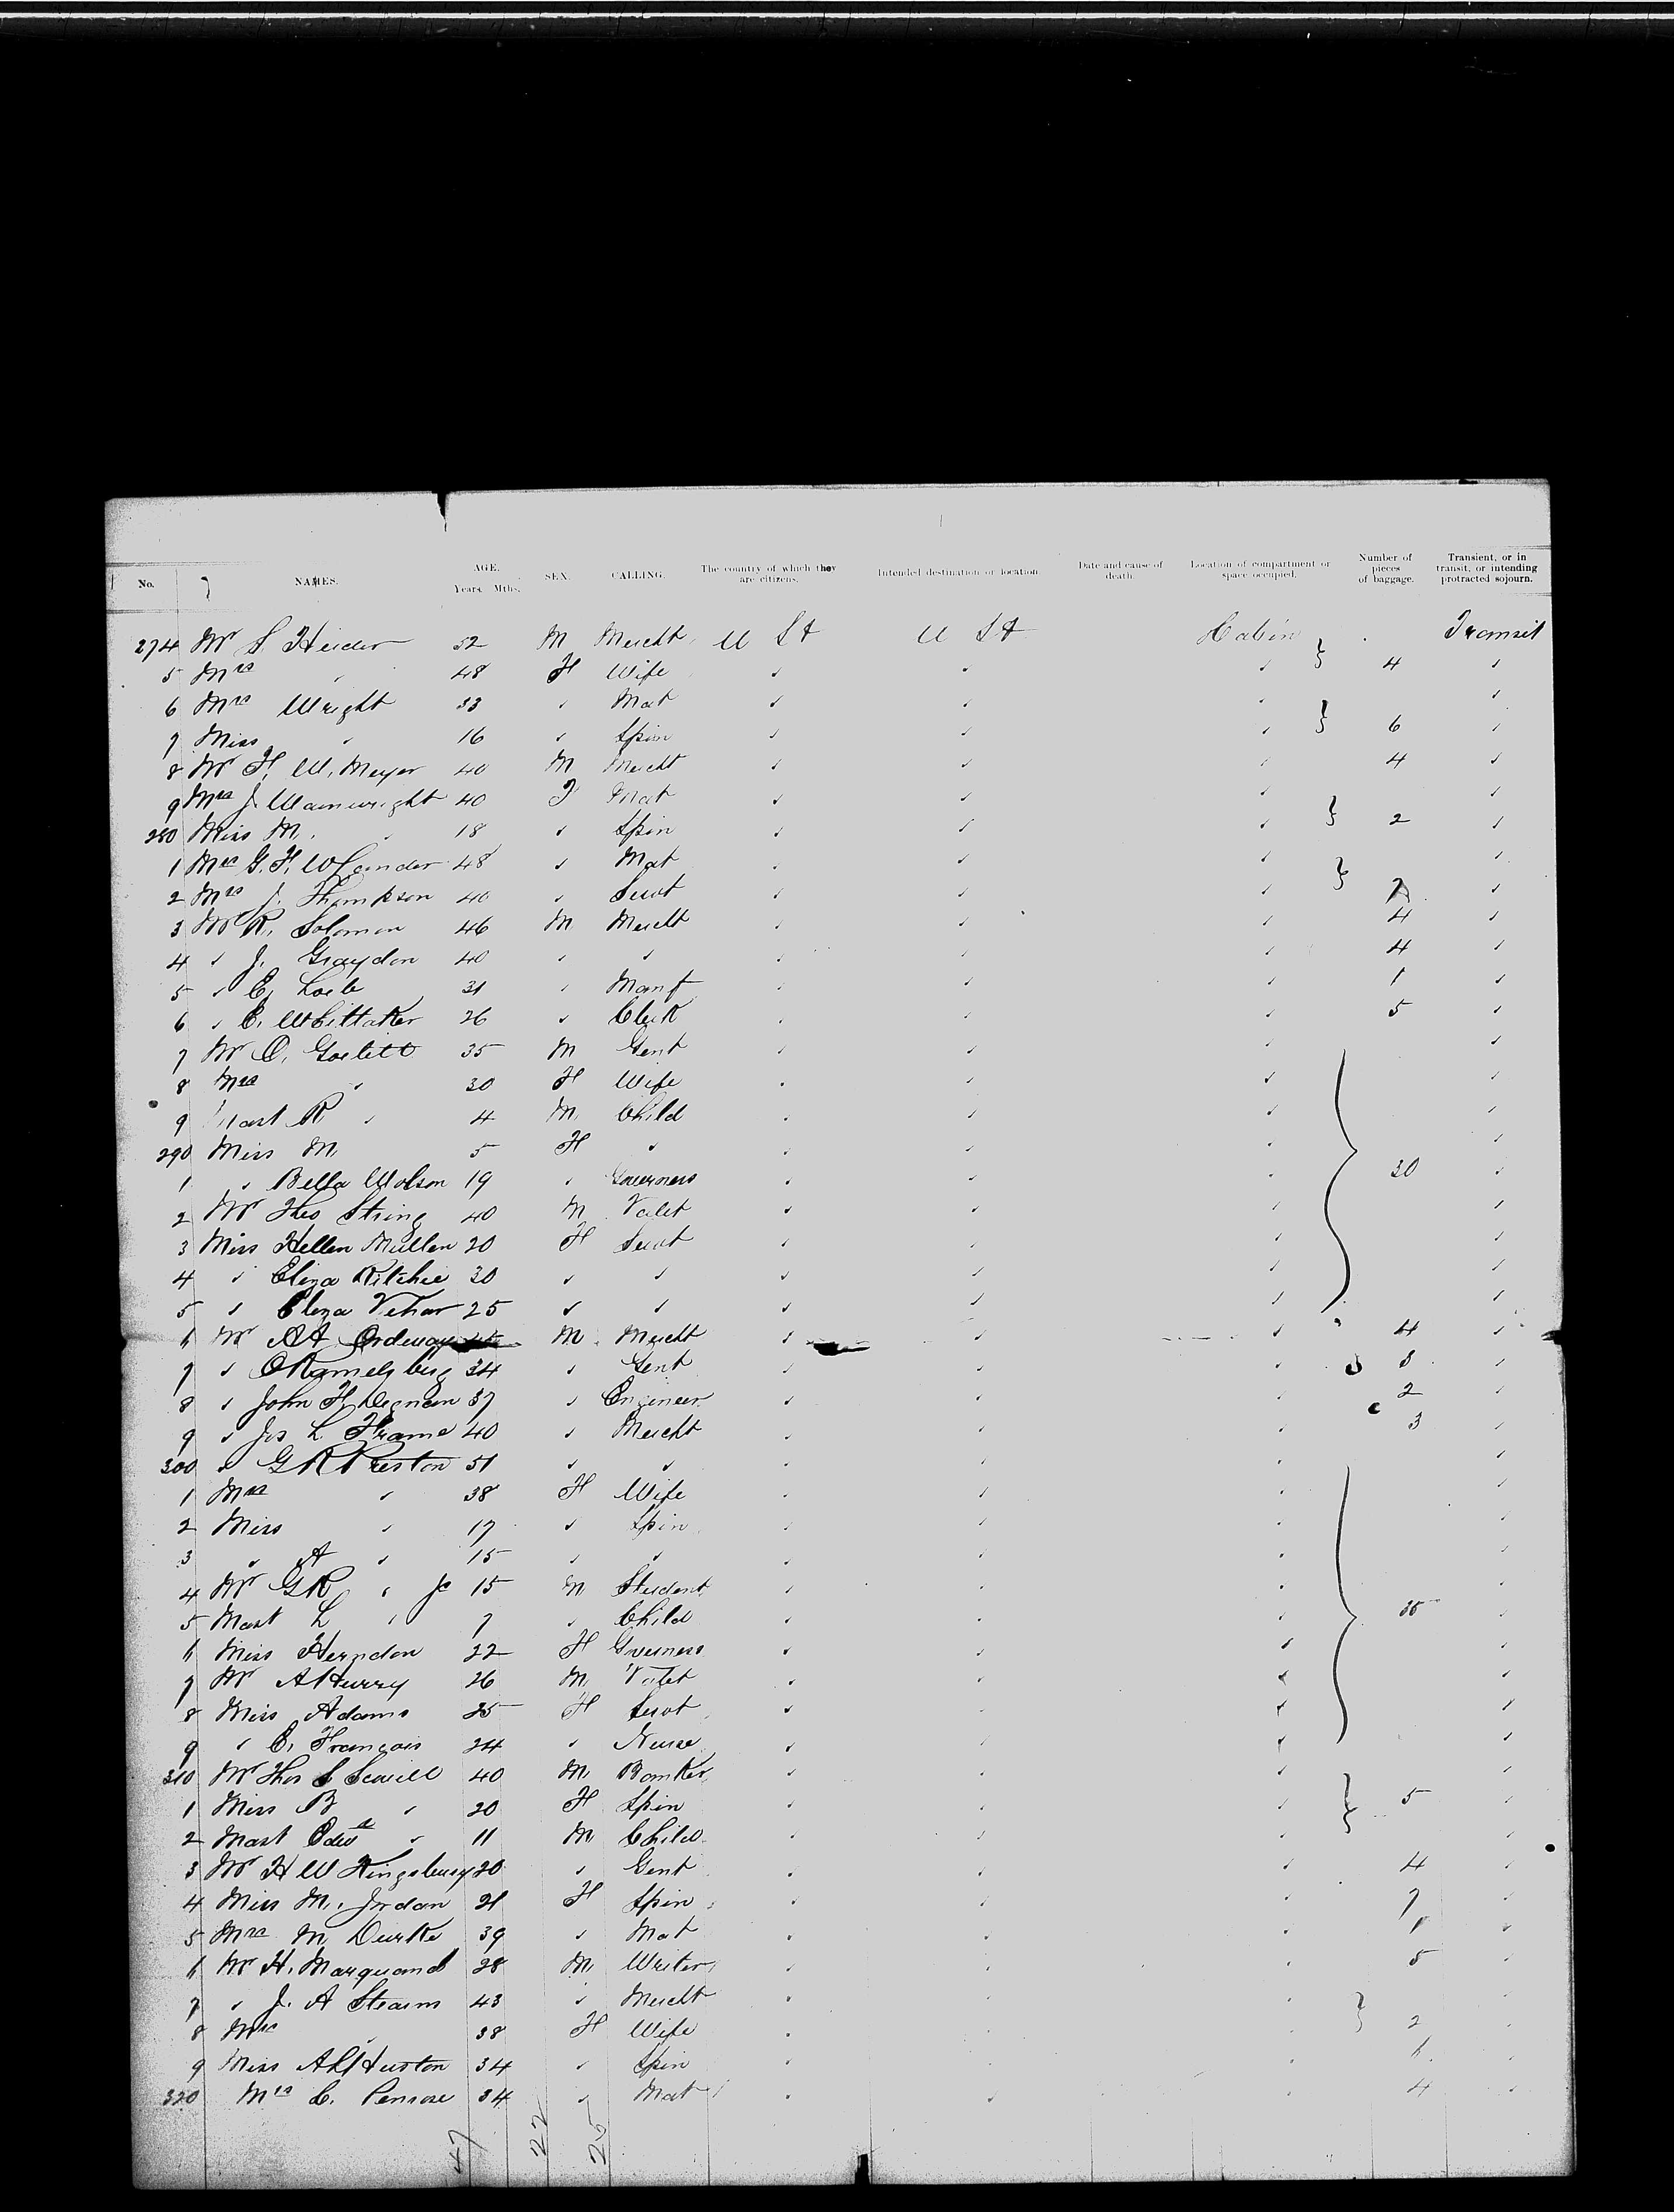 No. NAMES. AGE. Years. Mths. SEX. CALLING. The country of which they are citizens. Intended destination or location Date and cause of death. Location of compartment or space occupied. Number of pieces of baggage. Transient, or in transit, or intending protracted sojourn.
274 Mr S. Heider 52 M Mercht U St U St Cabin Transit
5 Mrs " 48 F Wife " " " } 4 "
6 Mrs Wright 33 " Mat " " " "
7 Miss " 16 " Spin " " " } 6 "
8 Mr F. W. Meyer 40 M Mercht " " " 4 "
9 Mrs J. Wainwright 40 F Mat " " " "
280 Miss M. " 18 " Spin " " " } 2 "
1 Mrs G. F. 48 " Mat " " " "
2 Mrs J. Thompson 40 " Servt " " " } 7 "
3 Mr R. Solomon 46 M Mercht " " " 4 "
4 " J. Graydon 40 " " " " " 4 "
5 " E. Loeb 31 " Manf " " " 1 "
6 " E. Whittaker 26 " Clerk " " " 5 "
7 Mr O. 35 M Gent " " " "
8 Mrs " 30 F Wife " " " "
9 Mast R " 4 M Child " " " "
290 Miss M 5 F " " " " "
1 " Bella Wolson 19 " Governess " " " 20 "
2 Mr Theo String 40 M Valet " " " "
3 Miss Hellen Mullen 20 F Servt " " " "
4 " Eliza Ritchie 30 " " " " " "
5 " Eliza 25 " " " " " "
6 Mr A A Ordway M Mercht " " " 4 "
7 " O Ramelsberg 34 " Gent " " " 3 "
8 " John F. Degnan 37 " Engineer " " " 2 "
9 " Jos L. Frame 40 " Mercht " " " 3 "
300 " G R Preston 51 " " " " " "
1 Mrs " 38 F Wife " " " "
2 Miss " 17 " Spin " " " "
3 " A " 15 " " " " " "
4 Mr G R " Jr 15 M Student " " " "
5 Mast L " 7 " Child " " " 35 "
6 Miss Herndon 22 F Governess " " " "
7 Mr A Hurry 26 M Valet " " " "
8 Miss Adams 25 F Servt " " " "
9 " E. François 24 " Nurse " " " "
310 Mr Thos S Scovill 40 M Banker " " " "
1 Miss B " 20 F Spin " " " } 5 "
2 Mast Edwd " 11 M Child " " " "
3 Mr H W Kingsbury 20 " Gent " " " 4 "
4 Miss M. Jordan 21 F Spin " " " 7 "
5 Mrs M Durke 39 " Mat " " " 1 "
6 Mr H. Marquand 28 M Writer " " " 5 "
7 " J. A Stearns 43 " Mercht " " " "
8 Mrs " 38 F Wife " " " } 2 "
9 Miss A L Huston 34 " Spin " " " 6 "
320 Mrs C. Penrose 34 " Mat " " " 4 "
47 22 25